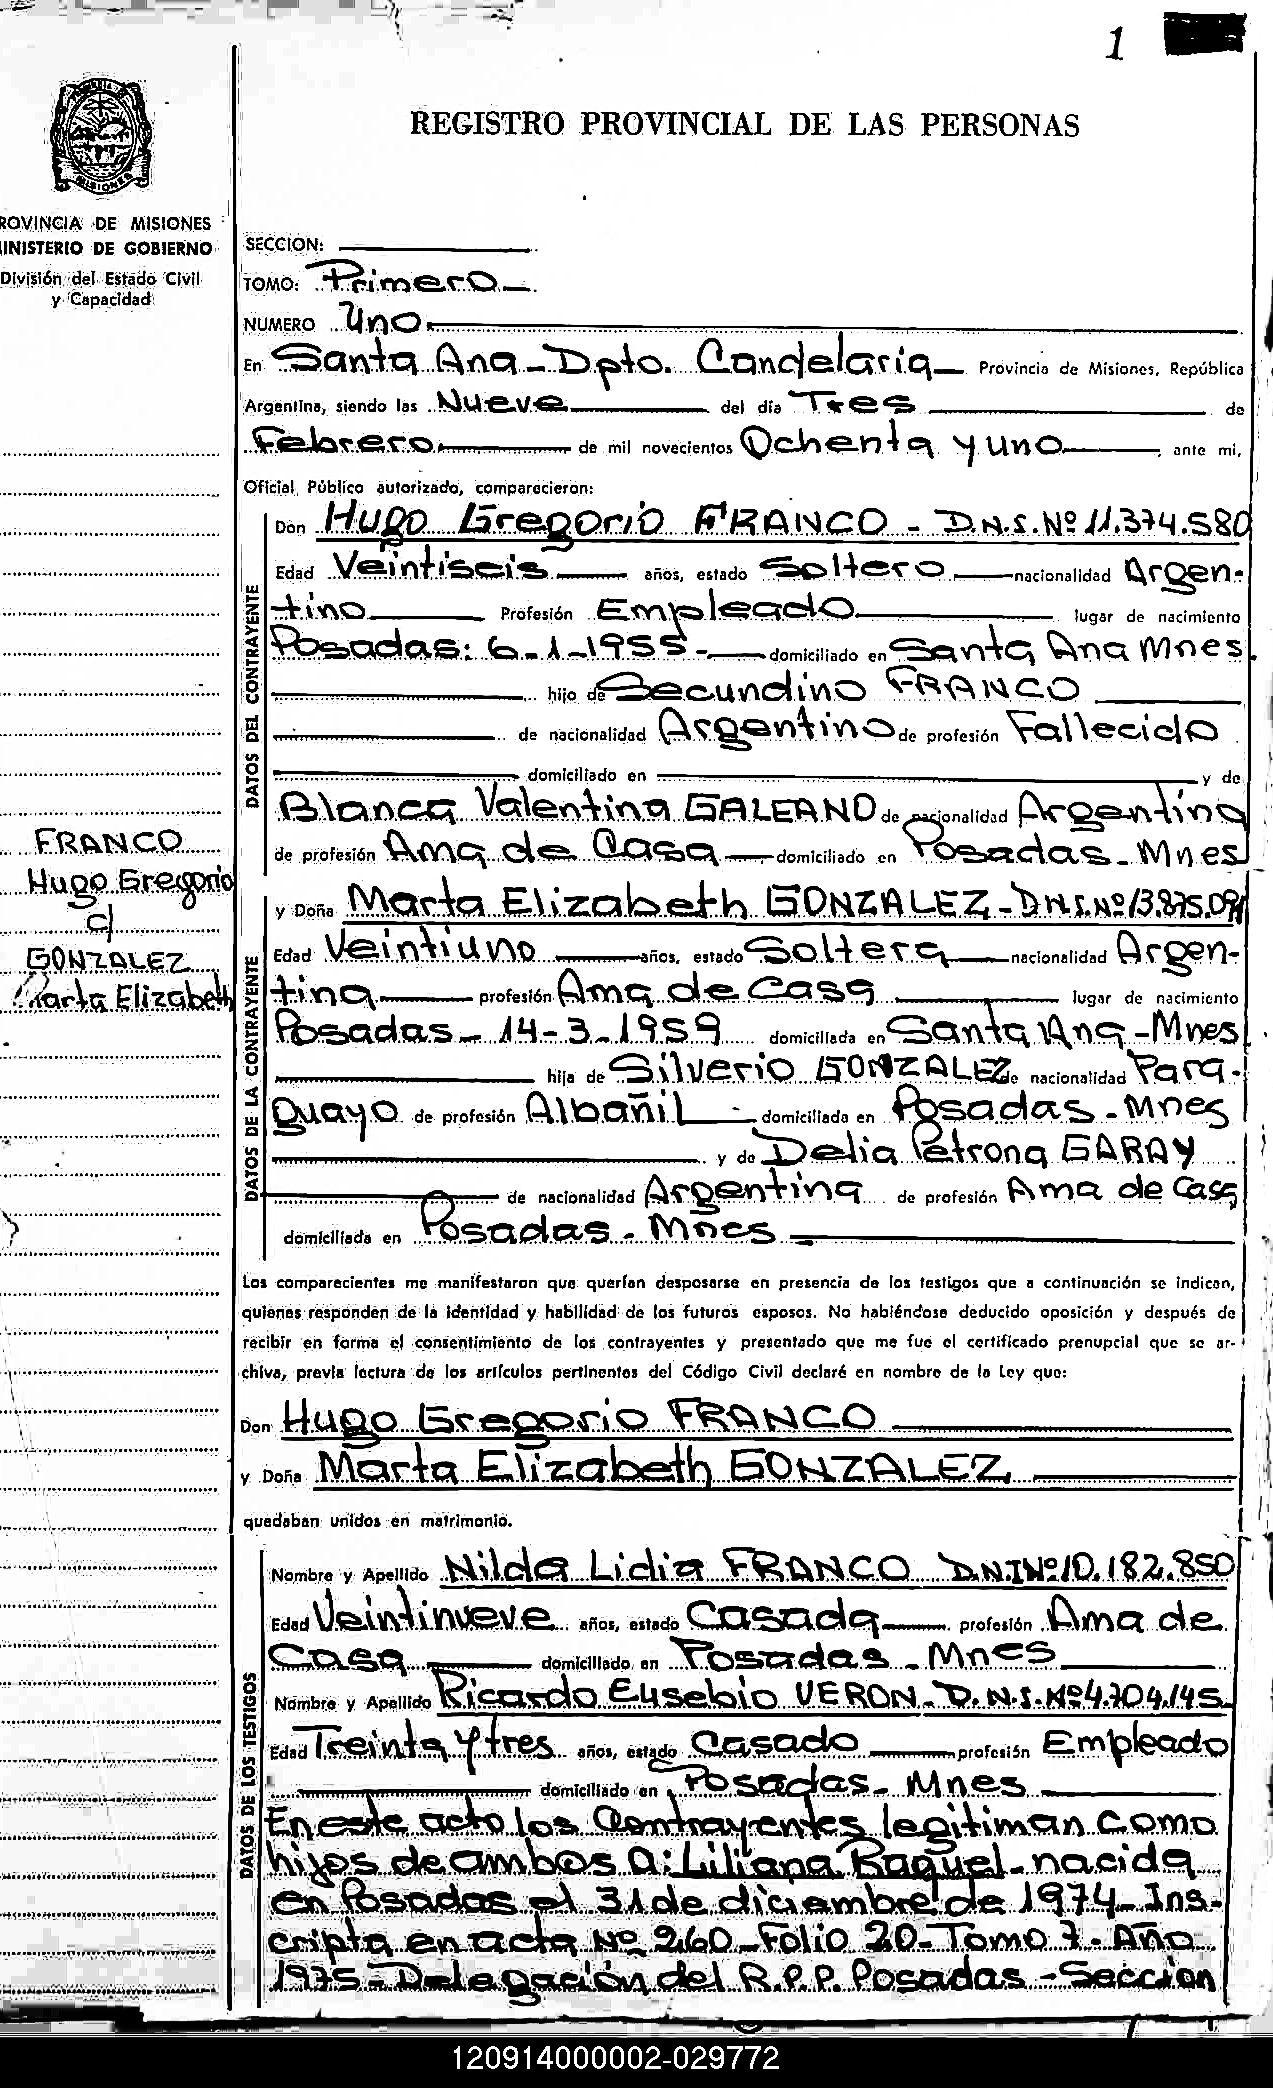 1
REGISTRO PROVINCIAL DE LAS PERSONAS
MISIONES
ROVINCIA DE MISIONES
INISTERIO DE GOBIERNO
División del Estado Civil
y Capacidad
SECCION:
TOMO: Primero
NUMERO Uno
En Santa Ana - Dpto. Candelaria Provincia de Misiones, República
Argentina, siendo las Nueve del día Tres de
Febrero de mil novecientos Ochenta y uno, ante mi,
Oficial Público autorizado, comparecieron:
DATOS DEL CONTRAYENTE
Don Hugo Gregorio FRANCO - D.N.I. Nº 11.374.580
Edad Veintiseis años, estado Soltero nacionalidad Argen-
tino Profesión Empleado lugar de nacimiento
Posadas: 6-1-1955- domiciliado en Santa Ana Mnes.
hijo de Secundino FRANCO
de nacionalidad Argentino de profesión Fallecido
domiciliado en y de
Blanca Valentina GALEANO de nacionalidad Argentina
de profesión Ama de Casa domiciliado en Posadas - Mnes
FRANCO
Hugo Gregorio
c/
GONZALEZ
Marta Elizabeth
DATOS DE LA CONTRAYENTE
y Doña Marta Elizabeth GONZALEZ - D.N.I. Nº 13.875.091
Edad Veintiuno años, estado Soltera nacionalidad Argen-
tina profesión Ama de Casa lugar de nacimiento
Posadas - 14-3-1959 domiciliada en Santa Ana - Mnes
hija de Silverio GONZALEZ de nacionalidad Para-
guayo de profesión Albañil domiciliada en Posadas - Mnes
y de Delia Petrona GARAY
de nacionalidad Argentina de profesión Ama de Casa
domiciliada en Posadas - Mnes
Los comparecientes me manifestaron que querían desposarse en presencia de los testigos que a continuación se indican,
quienes responden de la identidad y habilidad de los futuros esposos. No habiéndose deducido oposición y después de
recibir en forma el consentimiento de los contrayentes y presentado que me fue el certificado prenupcial que se ar-
chiva, previa lectura de los artículos pertinentes del Código Civil declaré en nombre de la Ley que:
Don Hugo Gregorio FRANCO
y Doña Marta Elizabeth GONZALEZ
quedaban unidos en matrimonio.
DATOS DE LOS TESTIGOS
Nombre y Apellido Nilda Lidia FRANCO D.N.I Nº 10.182.850
Edad Veintinueve años, estado Casada profesión Ama de
Casa domiciliado en Posadas - Mnes
Nombre y Apellido Ricardo Eusebio VERON - D.N.I. Nº 4.704.145
Edad Treinta y tres años, estado Casado profesión Empleado
domiciliado en Posadas - Mnes
En este acto los Contrayentes legitiman como
hijos de ambos a: Liliana Raquel - nacida
en Posadas el 31 de diciembre de 1974 - Ins-
cripta en acta Nº 260 - Folio 20 - Tomo 7 - Año
1975 - Delegación del R.P.P. Posadas - Sección
120914000002-029772